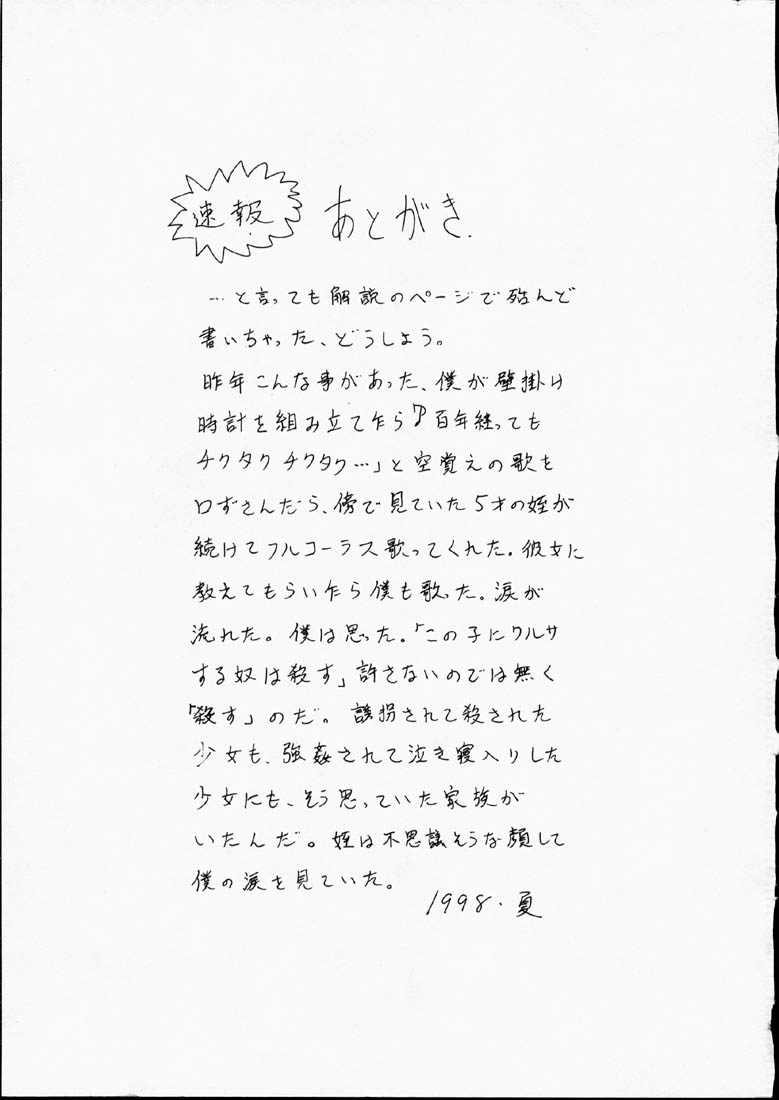 速報 あとがき.
…と言っても解説のページで殆んど
書いちゃった、どうしよう。
昨年こんな事があった、僕が壁掛け
時計を組み立て乍ら「百年経っても
チクタクチクタク…」と空覚えの歌を
口ずさんだら、傍で見ていた5才の姪が
続けてフルコーラス歌ってくれた。彼女に
教えてもらい乍ら僕も歌った。涙が
流れた。僕は思った。「この子にワルサ
する奴は殺す」許さないのでは無く
「殺す」のだ。誘拐されて殺された
少女も、強姦されて泣き寝入りした
少女にも、そう思っていた家族が
いたんだ。姪は不思議そうな顔して
僕の涙を見ていた。
1998.夏